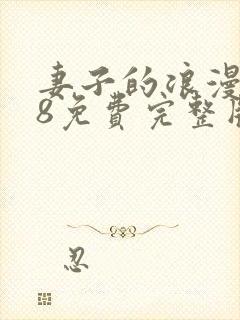 妻子的浪漫
8免费完整
忍